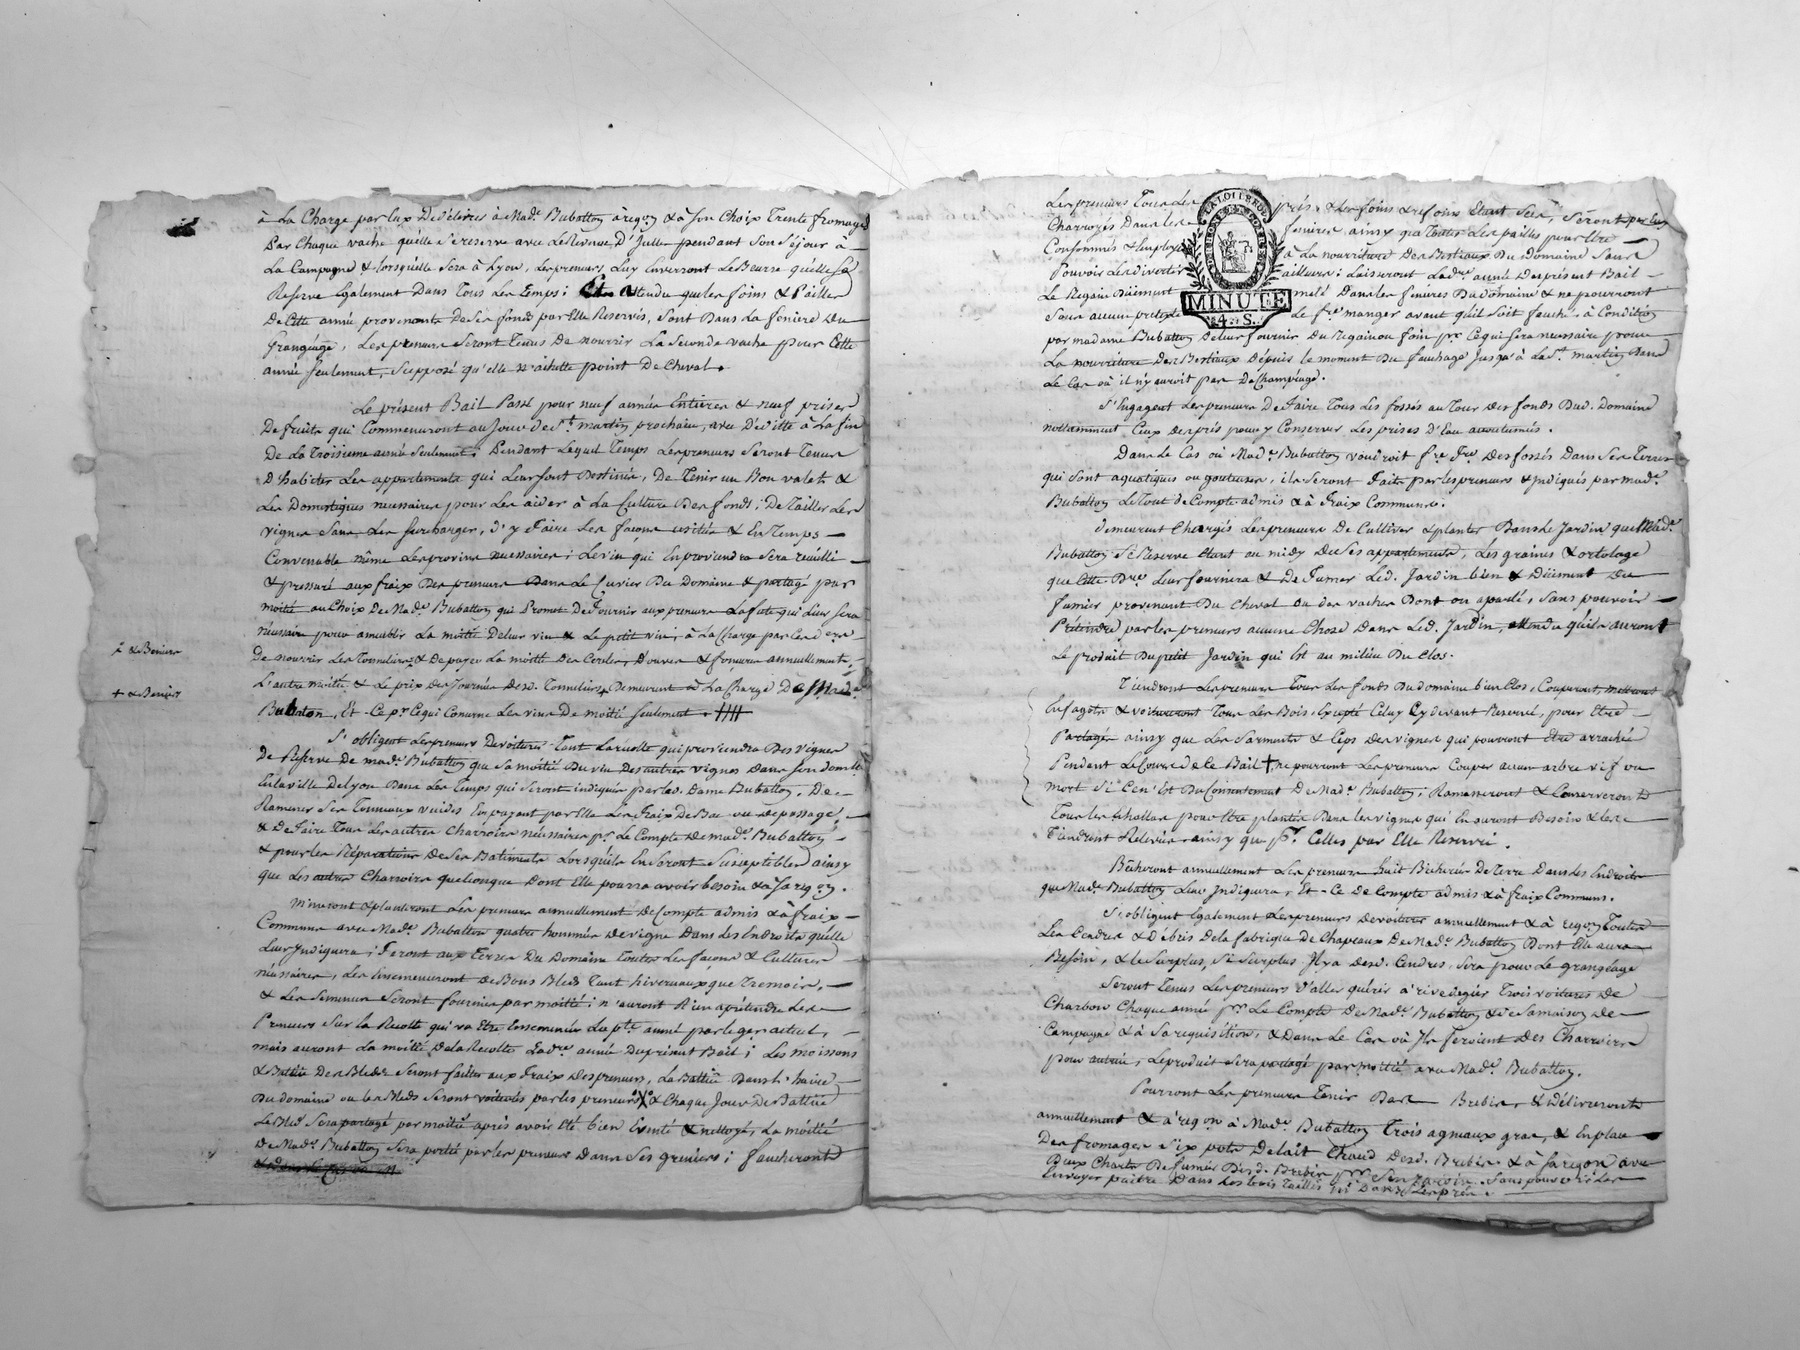 à La Charge par Eux De délivrer à Made. Bubatton à reqon & à Son Choix Trente fromages
Par Chaque vache qu'elle se reserve avec Le Revenu D'jcelle pendant Son Séjour à
La Campagne & Lorsqu'elle sera à Lyon, Les preneurs Luy Enverront Le Beurre qu'elle se
Reserve Egalement Dans Tous Les Temps; attendu que les foins & Pailles
De Cette année provenants De Ses fonds par Elle Reservés, Sont Dans La feniere Du
grangéage, Les preneurs Seront Tenus De nourrir La Seconde vache pour Cette
année Seulement, Supposé qu'elle n'achette point De Cheval.
Le présent Bail Passé pour neuf années Entières & neuf prises
De fruits qui Commenceront au Jour de St. martin prochain, avec Déditte à La fin
De La Troisieme année Seulement; Pendant Lequel Temps Les preneurs Seront Tenus
D'habiter Les appartements qui Leur Sont Destinés, De Tenir un Bon valet &
Les Domestiques necessaires pour Les aider à La Culture Des fonds; De Tailler Les
vignes Sans Les Surcharger, d'y Faire Les façons usitées & En Temps
Convenable même Les provins necessaires; Le vin qui En proviendra Sera recuilli
& pressuré aux fraix Des preneurs Dans Le Cuvier Du Domaine & partagé par
moitié au Choix De Made. Bubatton qui Promet De Fournir aux preneurs La futte qui Leur Sera
nécessaire pour ameublir La moitié De Leur vin & Le petit vin, à La Charge par Ces d.
De nourrir Les Tonneliers & De payer La moitié Des Cercles, Douves & fonçures annuellement,
L'autre moitié & Le prix Des Journées Desd. Tonneliers Demeurent à La Charge De Made.
Bubaton, Et Ce pr. Ce qui Concerne Les vins De moitié Seulement.
& Beniers
+ & Beniers
S'obligent Les preneurs De voiturer Tant La recolte qui proviendra Des Vignes
De Reserve De made. Bubatton que Sa moitié Du vin Des autres vignes Dans Son domlle.
En La ville De Lyon Dans Les Temps qui Seront indiqués par Lad. Dame Bubatton, De
Ramener Ses Tonneaux vuides En payant par Elle Les Fraix De Bac ou De passage,
& De Faire Tous Les autres Charroirs nécessaires pr. Le Compte De made. Bubatton
& pour Les Réparations De Ses Batiments Lorsqu'ils En Seront Susceptibles ainsy
que Les autres Charroirs quelconque Dont Elle pourra avoir besoin & à Sa reqon.
Mineront & planteront Les preneurs annuellement De Compte admis & à fraix
Communs avec Made. Bubatton quatre hommées De vigne Dans Les Endroits qu'elle
Leur Jndiquera; Feront aux Terres Du Domaine Toutes Les façons & Cultures
nécessaires, Les Ensemenceront De Bons Bleds Tant hivernaux que Tremois,
& Les Semences Seront fournies par moitié; n'auront Rien à prétendre Les
Preneurs Sur La Recolte qui va Etre Ensemencée La pte. année par Le ger. actuel,
mais auront La moitié De La Recolte La dre. année Du présent Bail; Les moissons
& Battue Des Bleds Seront faites aux Fraix Des preneurs, La Battue Dans L'haire
Du domaine ou Les Bleds Seront voiturés par les preneurs & Chaque Jour De Battue
Le Bled Sera partagé par moitié après avoir Eté bien Eventé & nettoyé, La moitié
De Made. Bubatton Sera portée par les preneurs Dans Ses greniers; faucheront
Les preneurs Tous Les prés & Les foins & refoins Etant Secs, Seront par Eux
Charroyés Dans Les fenieres ainsy que Toutes Les pailles pour Etre
Consommés & Employés à La nourriture Des Bestiaux Du Domaine Sans
Pouvoir Les divertir ailleurs; Laisseront La dre. année Du présent Bail
Le Regain Düement melé Dans Les fenieres Du domaine & ne pourront
Sous aucun pretexte Le fre. manger avant qu'il Soit fauché, à Condition
par madame Bubatton De Leur fournir Du Regain ou foin pr. Ce qui Sera necessaire pour
La nourriture Des Bestiaux Depuis Le moment Du fauchage Jusqu'à La St. martin Dans
Le Cas où il n'y auroit pas De Champéage.
LA LOI LE ROI
MINUTE
4. S.
S'Engagent Les preneurs De Faire Tous Les fossés au Tour Des fonds Dud. Domaine
nottamment Ceux Des prés pour y Conserver Les prises D'Eau accoutumés.
Dans Le Cas où Made. Bubatton voudroit fre. Fre. Des fossés Dans Ses Terres
qui Sont aquatiques ou gouteuses, ils Seront Faits par les preneurs & Jndiqués par made.
Bubatton Le Tout De Compte admis & à Fraix Communs.
Demeurent Chargés Les preneurs De Cultiver & planter Dans Le Jardin que Made.
Bubatton Se Reserve Etant au midy De Ses appartements, Les graines & ortolage
que Cette Dre. Leur fournira & De Fumer Led. Jardin bien & Düement Du
fumier provenant Du Cheval ou des vaches Dont on a parlé, Sans pouvoir
Prétendre par les preneurs aucune Chose Dans Led. Jardin, attendu qu'ils auront
Le produit Du petit Jardin qui Est au milieu Du Clos.
Tiendront Les preneurs Tous Les fonds Du domaine bien Clos, Couperont, mettront
En fagots & voitureront Tous Les Bois, Excepté Celuy Cy devant Reservé, pour Etre
Partagés ainsy que Les Sarments & Ceps Des vignes qui pourront Etre arrachés
Pendant Le Cours de Ce Bail + ne pourront Les preneurs Couper aucun arbre vif ou
mort Si Ce n'Est Du Consentement De Made. Bubatton; Ramasseront & Conserveront
Tous Les Echallas pour Etre plantés Dans Les vignes qui En auront Besoin & Les
Tiendront Relevés ainsy que pr. Celles par Elle Reservé.
Bêcheront annuellement Les preneurs huit Bicherées De Terre Dans Les Endroits
que Made. Bubatton Leur Jndiquera, Et Ce De Compte admis & à fraix Communs.
S'obligent Egalement Les preneurs De voiturer annuellement & à reqon Toutes
Les Cendres & Débris De La fabrique De Chapeaux De Made. Bubatton Dont Elle aura
Besoin, & Le Surplus, Si Surplus Jl y a Desd. Cendres, Sera pour Le grangéage
Seront Tenus Les preneurs D'aller quérir à rive de gier Trois voitures De
Charbon Chaque année pr. Le Compte De Made. Bubatton & De Sa maison De
Campagne & à Sa requisition, & Dans Le Cas où Jls feroient Des Charroirs
pour autrui, Le produit Sera partagé par moitié avec Made. Bubatton.
Pourront Les preneurs Tenir Des Brebis, & Délivreront
annuellement & à reqon à Made. Bubatton Trois agneaux gras, & En place
Des fromages Six pots De lait Chaud Desd. Brebis & à Sa reqon avec
Deux Chars De fumier Desd. Brebis pr. Son Jardin, Sans pouvoir Les
Envoyer paitre Dans Les bois Taillis ni Dans Les prés.